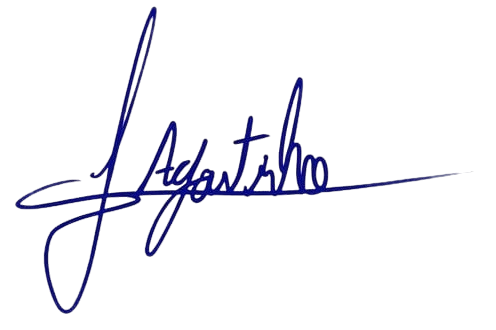 J Agostinho